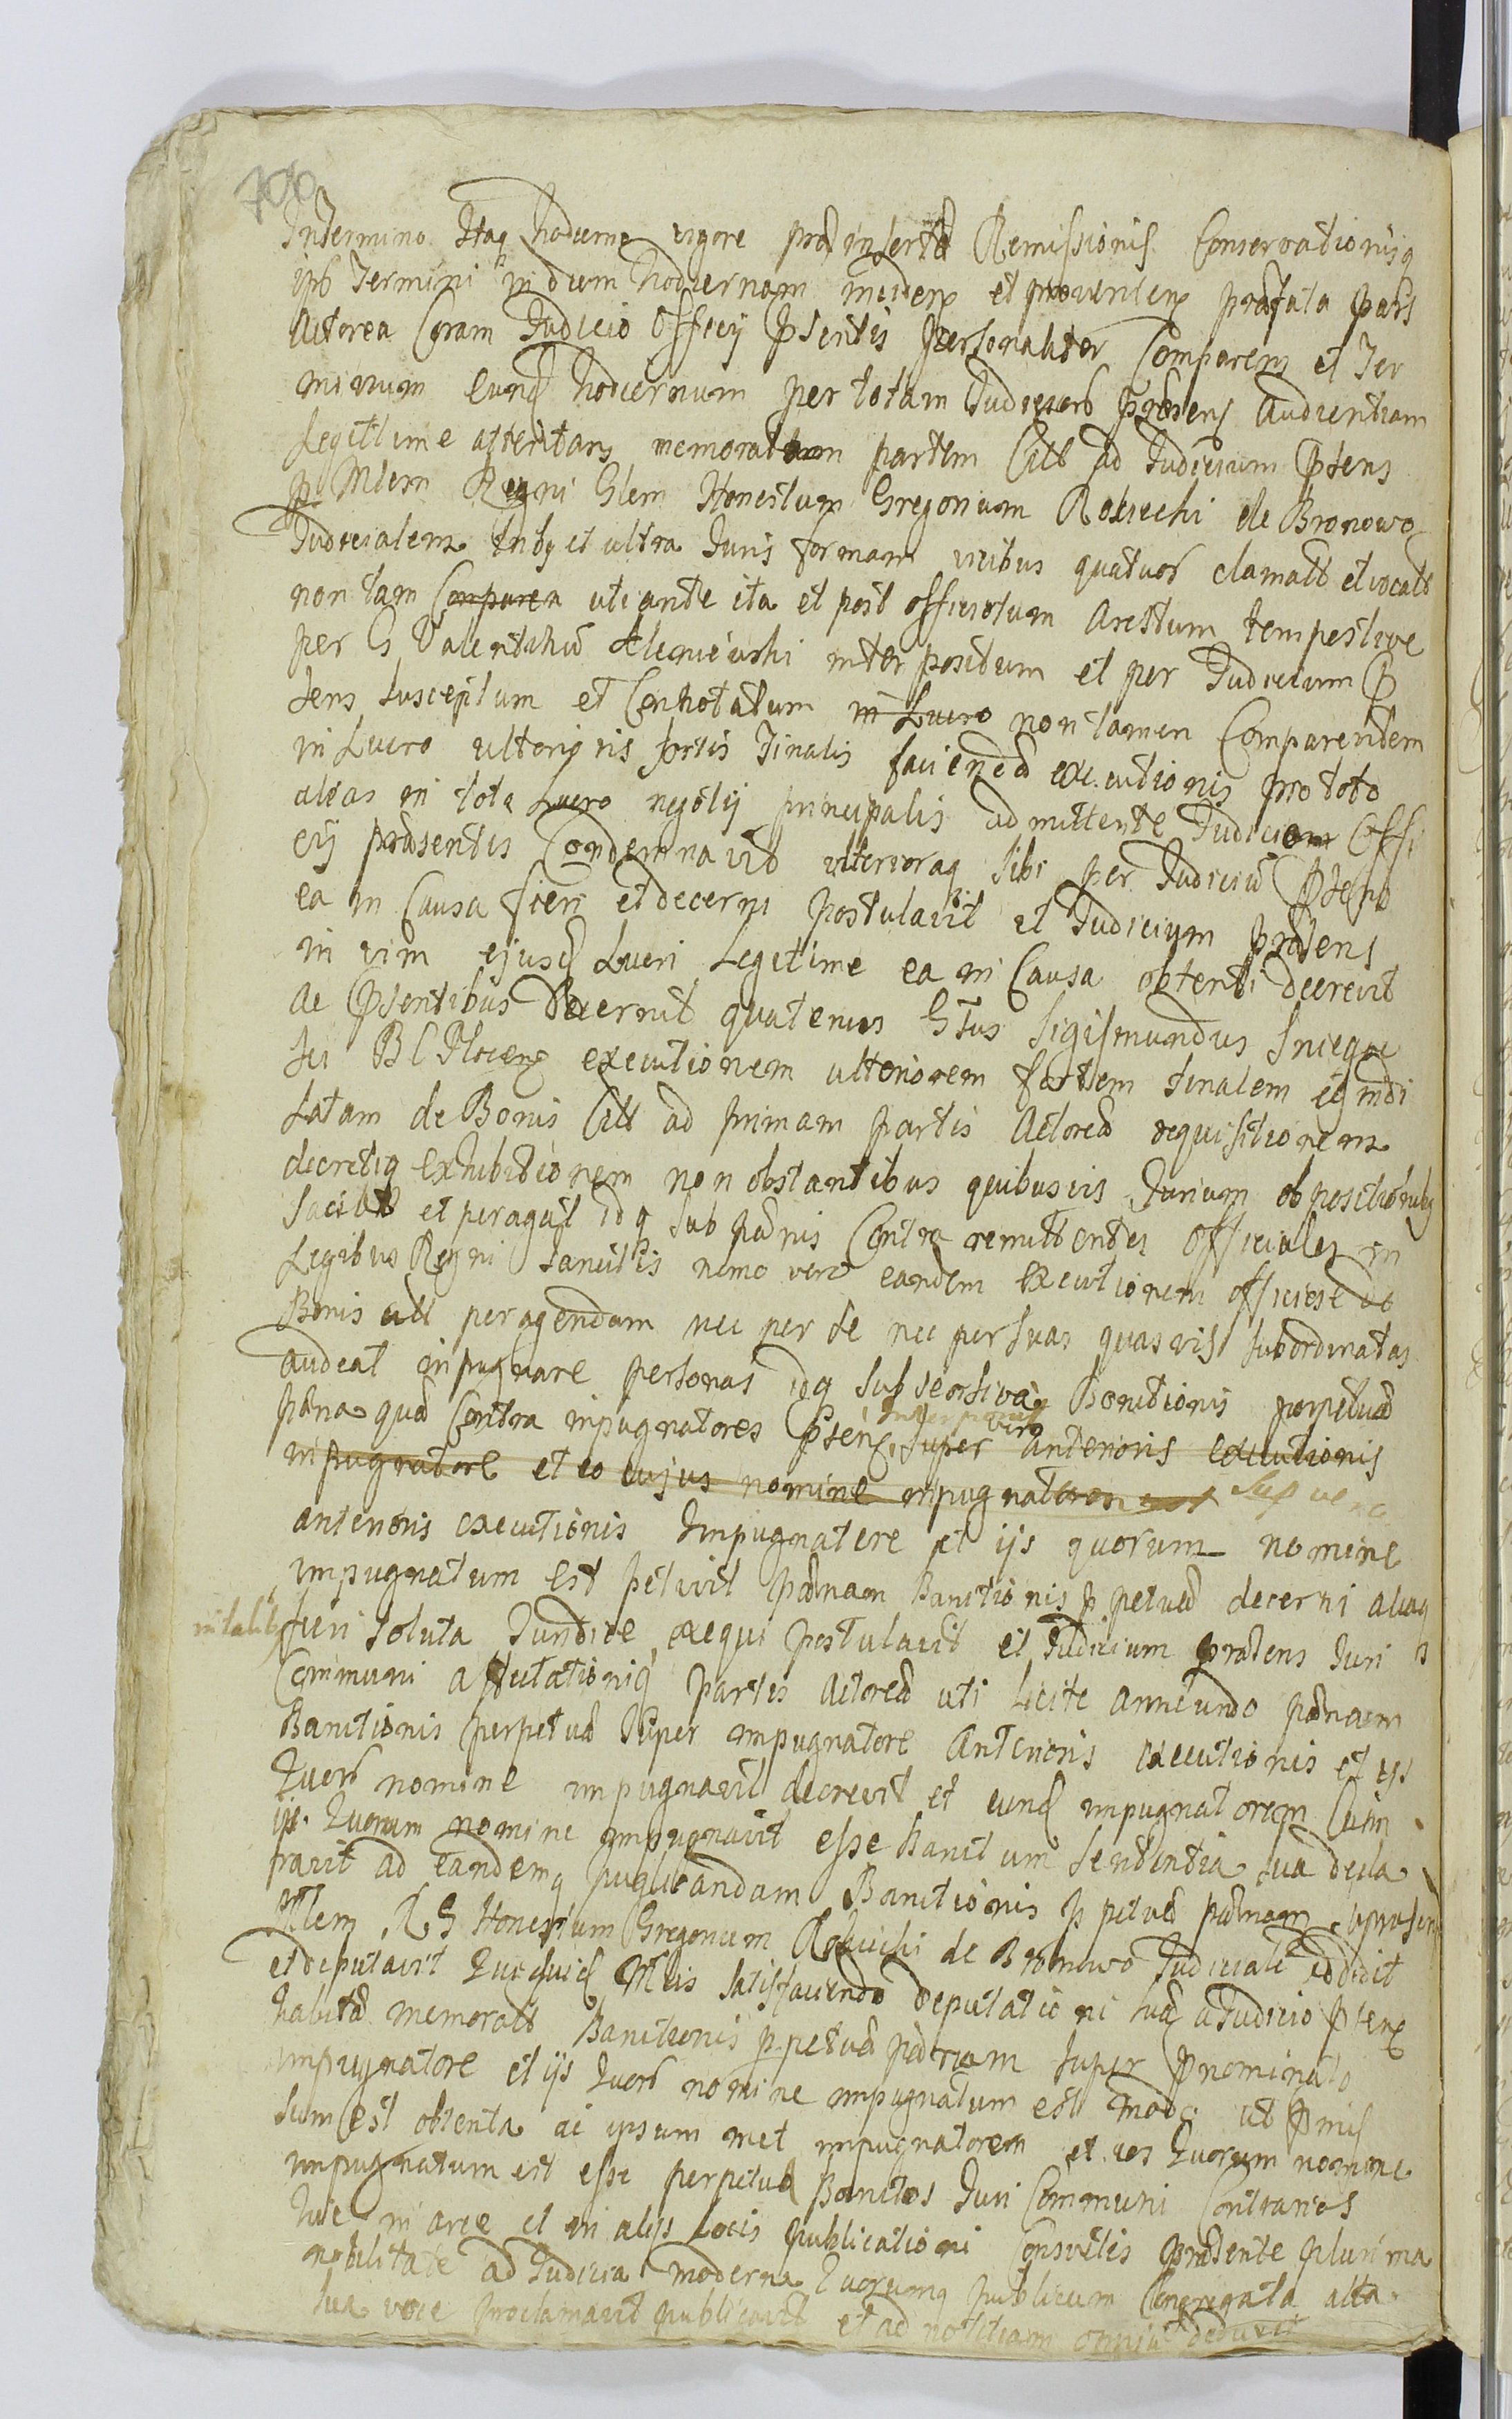 700
In termino Itaq hodierno vigore præinsertæ Remissionis Conservationisq
ips Termini in diem hodiernam inciden et provenien præfata pars
Actorea Coram Judicio Officij Psentis personaliter Comparens et Ter
minum eund hodiernum per totam Judiciorb præsens audientiam
Legittime attentans memoratam partem Citt ad Judicium Psens
p Mlem Regni Glem Honestum Gregorium Rokicki de Bronowo
Judicialem Indq et ultra Juris formam vicibus quatuor clamatt et vocatt
non tam Comparen uti ante ita et post officiosum Arestum tempestive
per G Valentinū interpositum et per Judicium P
sens susceptum et Connotatum in Lucro non tamen Comparentem
in Lucro ulterioris fortis finalis faciendæ executionis pro toto
alias in toto Lucro negotij principalis admittente Judicio Offi
cij præsentis Condemnavit ulterioraq sibi per Judiciū Psens
ea in Causa fieri et decerni postulavit et Judicium præsens
in vim ejusd Lucri Legitime ea in Causa obtenti decrevit
ac Psentibus decernit quatenus Gsus Sigismundus
BC Plocen executionem ulteriorem fortem finalem
Latam de Bonis Citt ad primam partis Actoreæ requisitionem
decretiq exhibitionem non obstantibus quibusvis Jurium oppositionibq
faciat et peragat idq sub pænis Contra remittentes officiales in
Legibus Regni sancitis nemo vero eandem executionem officiose de
Bonis Citt peragendam nec per se nec per suas quasvis subordinatas
audeat inpugnare personas idq sub Banitionis perpetuæ
pæna quæ Contra inpugnatores Psen super vero anterioris executionis
inpugnatore et eo cujus nomine inpugnatum est Sup vero
anterioris executionis Impugnatore et ijs quorum nomine
impugnatum est petivit pænam Banitionis ppetuæ decerni aliaq
Juri soluta Juridice exequi postulavit et Judicium præsens Juri
Communi affectationiq partis Actoreæ uti licite annuendo pænam
Banitionis perpetuæ super impugnatore Anterioris executionis et ijs
Quorb nomine impugnavit decrevit et eund impugnatorem Cum
ijs Quorum nomine impugnavit esse Banitum sententia sua decla
ravit ad eandemq publicandam Banitionis ppetuæ pænam
Mlem R G Honestum Gregorium Rokicki de Bronowo Judicialē addidit
et deputavit Quiquid Mlis satisfaciendo deputationi suæ a Judicio Psen
habitæ memoratt Banitionis ppetuæ pænam super Pnominato
impugnatore et ijs Quorb nomine impugnatum est modo ut Pmis
sum est obtenta ac ipsum met impugnatorem et eos Quorum nomine
impugnatum est esse perpetuæ Banitos Juri Communi Contrarios
hic in arce et in alijs Locis publicationi Consvetis præsente plurima
nobilitate ad Judicia moderna Quorumq publicum Congregata alta
sua voce proclamavit publicavit et ad notitiam omniū deduxit